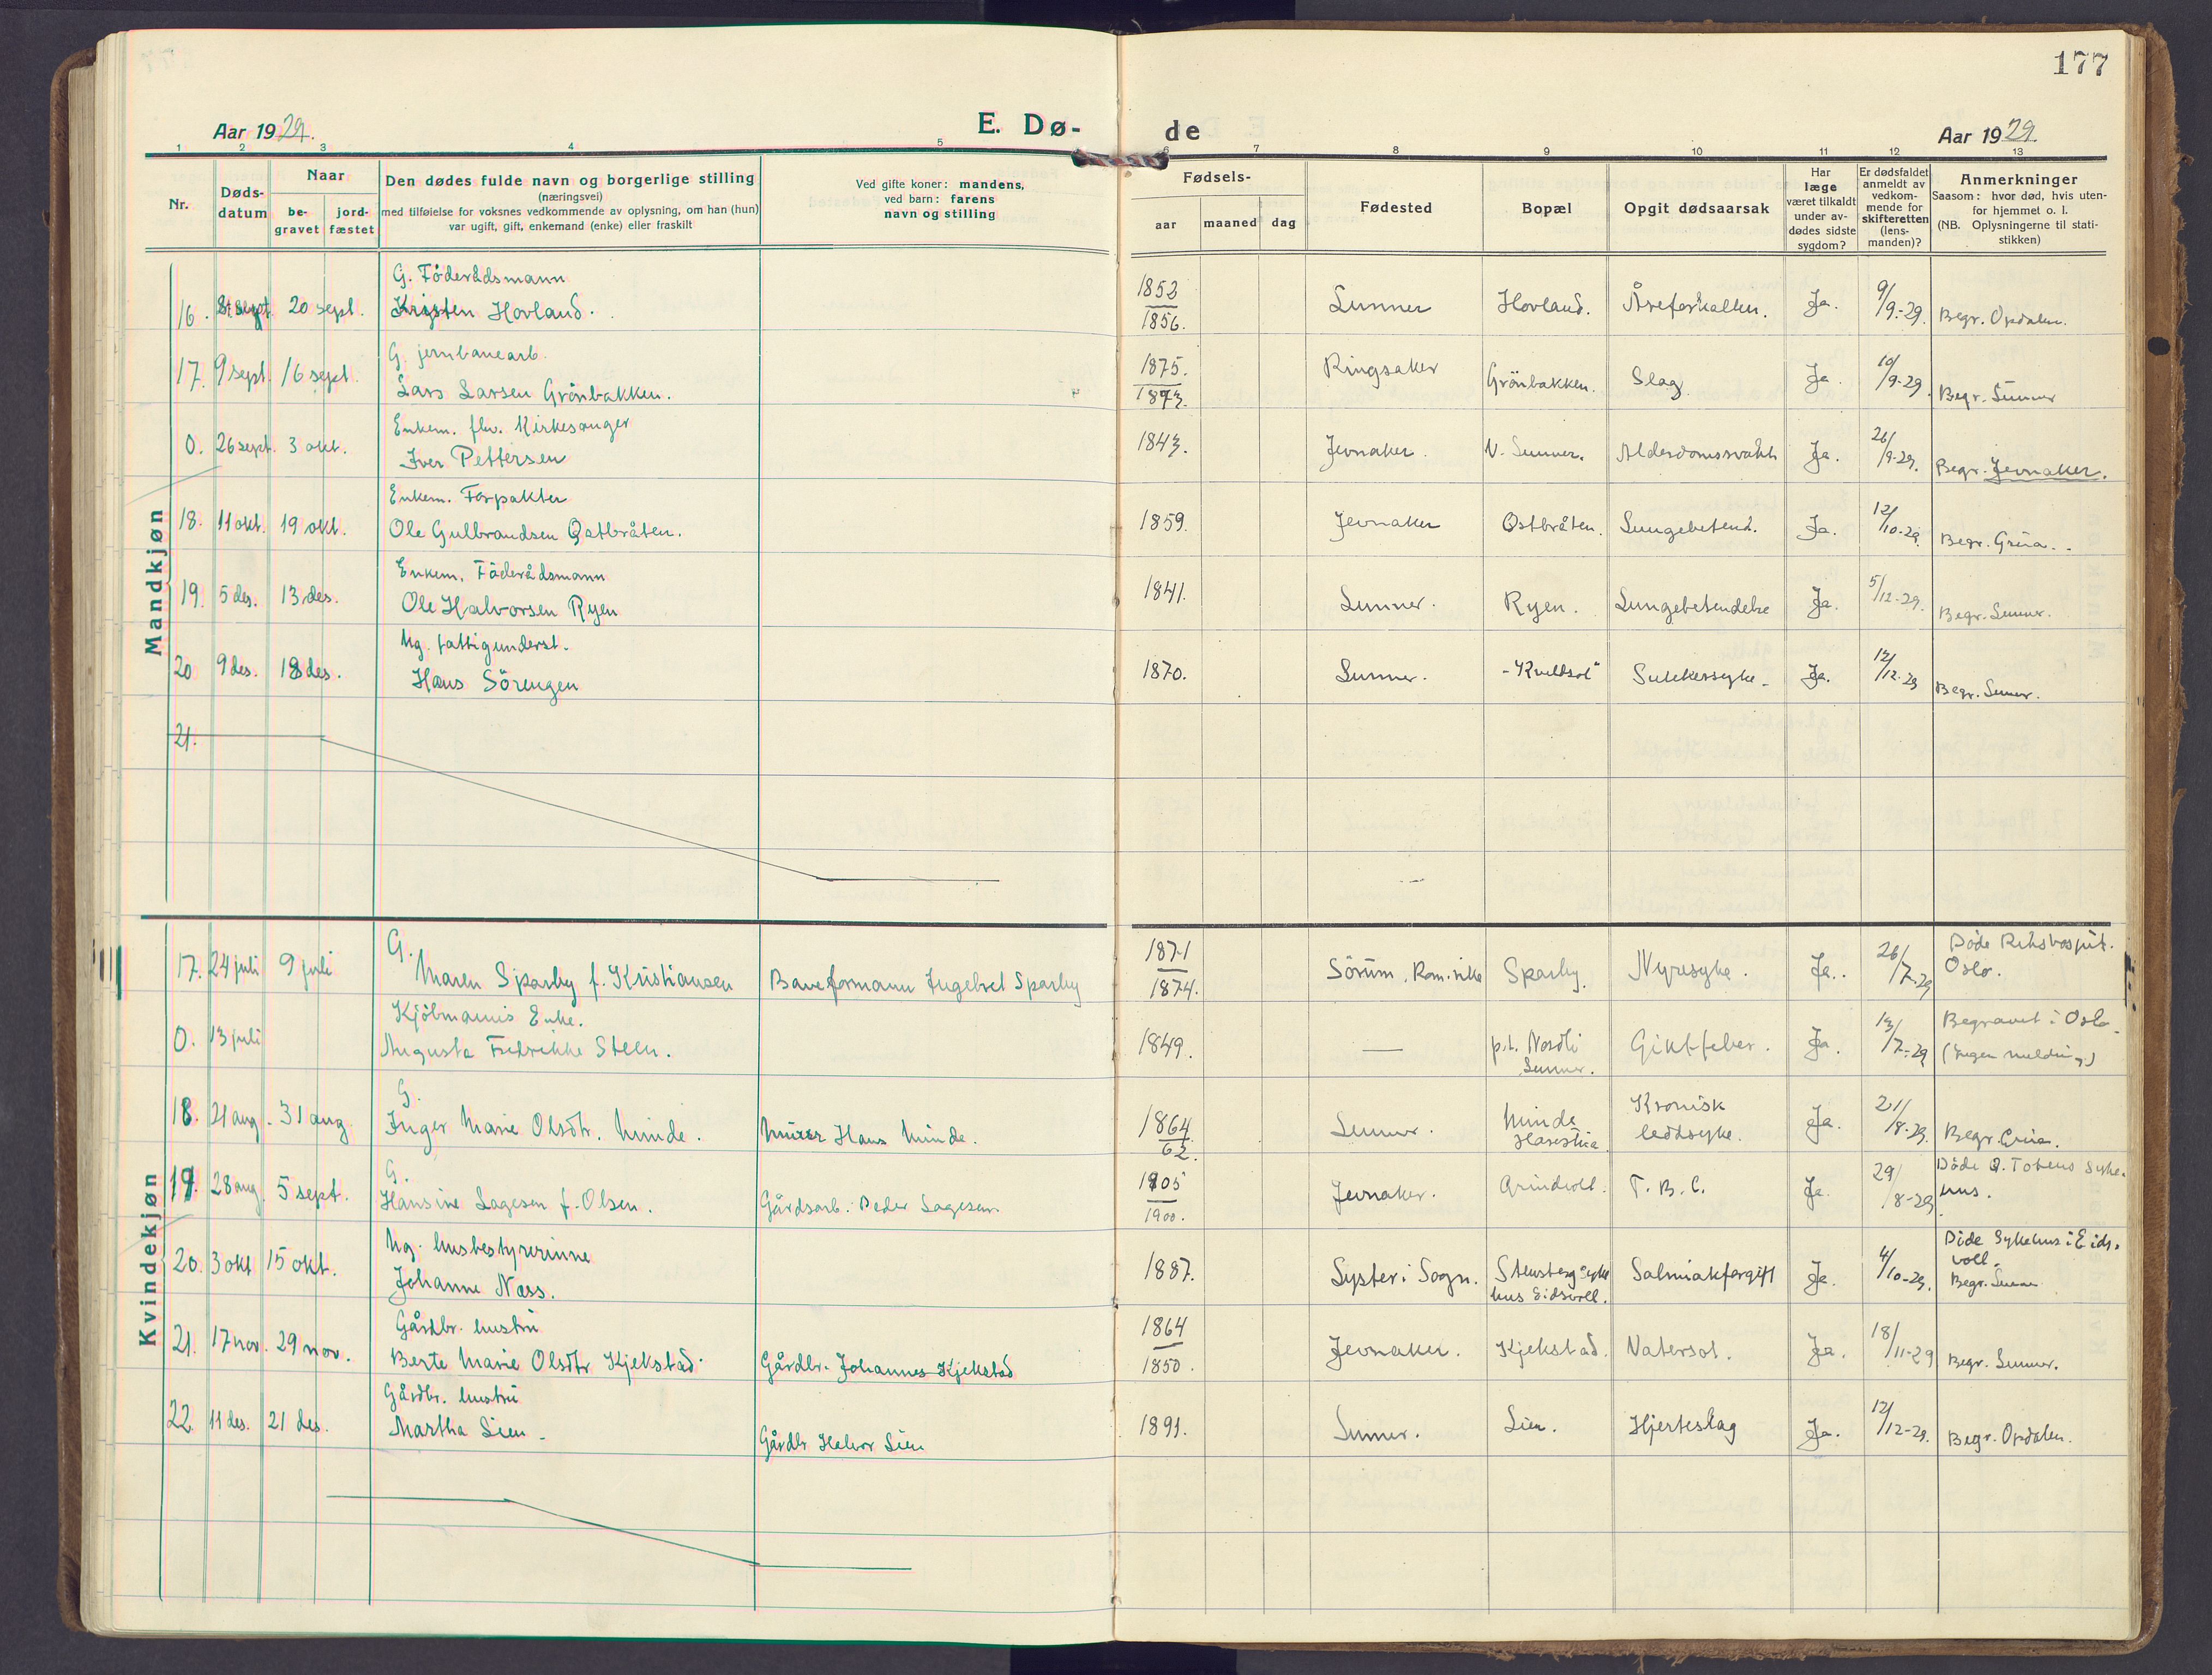 177
Aar 1929.
E. Dø-
de
Aar 1929.
1 2 3 4 5 6 7 8 9 10 11 12 13
Nr.
Døds-
datum
Naar
be-
gravet
jord-
fæstet
Den dødes fulde navn og borgerlige stilling
(næringsvei)
med tilføielse for voksnes vedkommende av oplysning, om han (hun)
var ugift, gift, enkemand (enke) eller fraskilt
Ved gifte koner: mandens,
ved barn: farens
navn og stilling
Fødsels-
aar
maaned
dag
Fødested
Bopæl
Opgit dødsaarsak
Har
læge
været tilkaldt
under av-
dødes sidste
sygdom?
Er dødsfaldet
anmeldt av
vedkom-
mende for
skifteretten
(lens-
manden)?
Anmerkninger
Saasom: hvor død, hvis uten-
for hjemmet o. l.
(NB. Oplysningerne til stati-
stikken)
Mandkjøn
G. Föderådsmann
16. 8 sept. 20 sept. Kristen Hovland. 1852 1856. Lunner Hovland. Åreforkalken. Ja. 9/9-29. Begr. Opdalen.
G. jernbanearb.
17. 9 sept. 16 sept. Lars Larsen Grönbakken. 1875. 1873. Ringsaker Grönbakken. Slag Ja. 10/9-29 Begr. Lunner
Enkem. fhv. Kirkesanger
0. 26 sept. 3 okt. Iver Pettersen 1843. Jevnaker. N. Lunner. Alderdomssvakh Ja. 26/9-29. Begr. Jevnaker.
Enkem. Forpakter
18. 11 okt. 19 okt. Ole Gulbrandsen Östbråten. 1859. Jevnaker Östbråten. Lungebetend. Ja. 12/10-29 Begr. Grua.
Enkem. Föderådsmann
19. 5 des. 13 des. Ole Halvorsen Ryen 1841. Lunner. Ryen. Lungebetendelse Ja. 5/12-29. Begr. Lunner.
Ug. fattigunderst.
20 9 des. 18 des. Hans Sörengen 1870. Lunner. "Kveldsol" Sukkersyke. Ja. 12/12-29 Begr. Lunner.
21.
Kvindekjøn
G.
17. 24 juli 9 juli Maren Sparby f. Kristiansen Baneformann Ingebret Sparby 1871 1874. Sörum. Romerike Sparby. Nyresyke. Ja. 26/7-29 Döde Rikshospit. Oslo.
Kjöbmanns Enke.
0. 13 juli Augusta Fredrikke Steen. 1849. — p.t. Nordli Lunner. Giktfeber. Ja. 13/7-29 Begravet i Oslo. (Ingen melding)
G.
18. 21 aug. 31 aug. Inger Marie Olsdtr. Minde. Murer Hans Minde. 1864 62. Lunner. Minde Harestua Kronisk leddsyke. Ja. 21/8-29. Begr. Grua.
G.
19. 28 aug. 5 sept. Hansine Lagesen f. Olsen. Gårdsarb. Peder Lagesen 1905 1900. Jevnaker. Grindvoll. T. B. C. Ja. 29/8-29 Döde Ö. Totens sykehus.
Ug. husbestyrerinne
20. 3 okt 15 okt. Johanne Næss. 1887. Lyster i Sogn. Stensberg sykehus Eidsvoll. Salmiakforgift Ja. 4/10-29. Döde Sykehus i Eidsvoll. Begr. Lunner
Gårdbr. hustru
21. 17 nov. 29 nov. Berte Marie Olsdtr Kjekstad. Gårdbr. Johannes Kjekstad 1864 1850. Jevnaker. Kjekstad. Ja. 18/11-29 Begr. Lunner.
Gårdbr. hustru
22. 11 des. 21 des. Martha Lien. Gårdbr Halvor Lien 1891. Lunner. Lien. Hjerteslag Ja. 12/12-29. Begr. Opdalen.